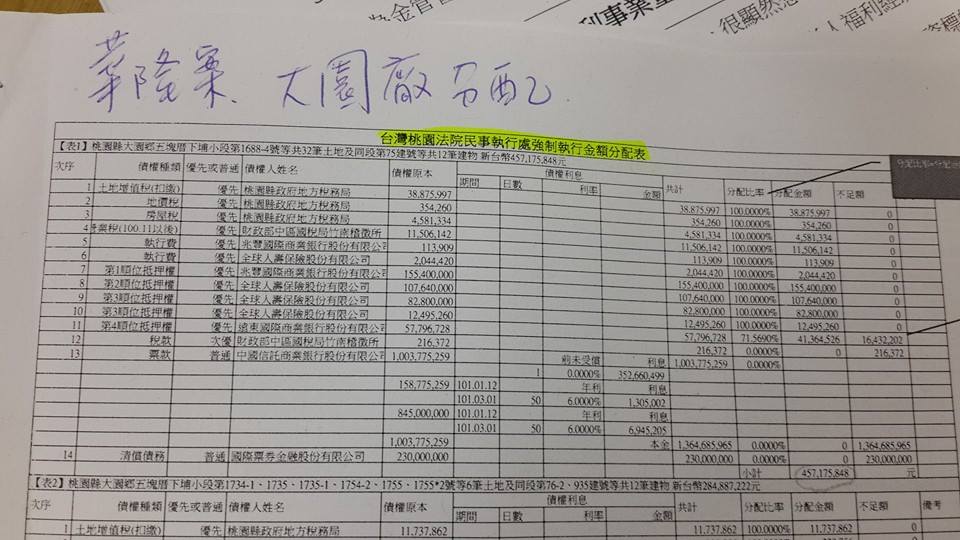 為金管會
利事業量
很顯然想
人福利經
華隆案 大園廠分配
台灣桃園法院民事執行處強制執行金額分配表
【表1】桃園縣大園鄉五塊厝下埔小段第1688-4號等共32筆土地及同段第75建號等共12筆建物 新台幣457,175,848元
次序 債權種類 優先或普通 債權人姓名 債權原本 債權利息 共計 分配比率 分配金額 不足額
期間 日數 利率 金額
1 土地增值稅(扣繳) 優先 桃園縣政府地方稅務局 38,875,997 38,875,997 100.0000% 38,875,997 0
2 地價稅 優先 桃園縣政府地方稅務局 354,260 354,260 100.0000% 354,260 0
3 房屋稅 優先 桃園縣政府地方稅務局 4,581,334 4,581,334 100.0000% 4,581,334 0
4 營業稅(100.11以後) 優先 財政部中區國稅局竹南稽徵所 11,506,142 11,506,142 100.0000% 11,506,142 0
5 執行費 優先 兆豐國際商業銀行股份有限公司 113,909 113,909 100.0000% 113,909 0
6 執行費 優先 全球人壽保險股份有限公司 2,044,420 2,044,420 100.0000% 2,044,420 0
7 第1順位抵押權 優先 兆豐國際商業銀行股份有限公司 155,400,000 155,400,000 100.0000% 155,400,000 0
8 第2順位抵押權 優先 全球人壽保險股份有限公司 107,640,000 107,640,000 100.0000% 107,640,000 0
9 第3順位抵押權 優先 全球人壽保險股份有限公司 82,800,000 82,800,000 100.0000% 82,800,000 0
10 第3順位抵押權 優先 全球人壽保險股份有限公司 12,495,260 12,495,260 100.0000% 12,495,260 0
11 第4順位抵押權 優先 遠東國際商業銀行股份有限公司 57,796,728 57,796,728 71.5690% 41,364,526 16,432,202
12 稅款 次優 財政部中區國稅局竹南稽徵所 216,372 216,372 0.0000% 0 216,372
13 票款 普通 中國信託商業銀行股份有限公司 1,003,775,259 前未受償 利息 1,003,775,259 0.0000%
1 0.0000% 352,660,499
158,775,259 101.01.12 年利 利息
101.03.01 50 6.0000% 1,305,002
845,000,000 101.01.12 年利 利息
101.03.01 50 6.0000% 6,945,205
1,003,775,259 本金 1,364,685,965 0.0000% 0 1,364,685,965
14 清償債務 普通 國際票券金融股份有限公司 230,000,000 230,000,000 0.0000% 0 230,000,000
小計 457,175,848 元
【表2】桃園縣大園鄉五塊厝下埔小段第1734-1、1735、1735-1、1754-2、1755、1755*2號等6筆土地及同段第76-2、935建號等共12筆建物 新台幣284,887,222元
次序 債權種類 優先或普通 債權人姓名 債權原本 債權利息 共計 分配比率 分配金額 不足額 備考
期間 日數 利率 金額
1 土地增值稅(扣繳) 優先 桃園縣政府地方稅務局 11,737,862 11,737,862 100.0000% 11,737,862 0